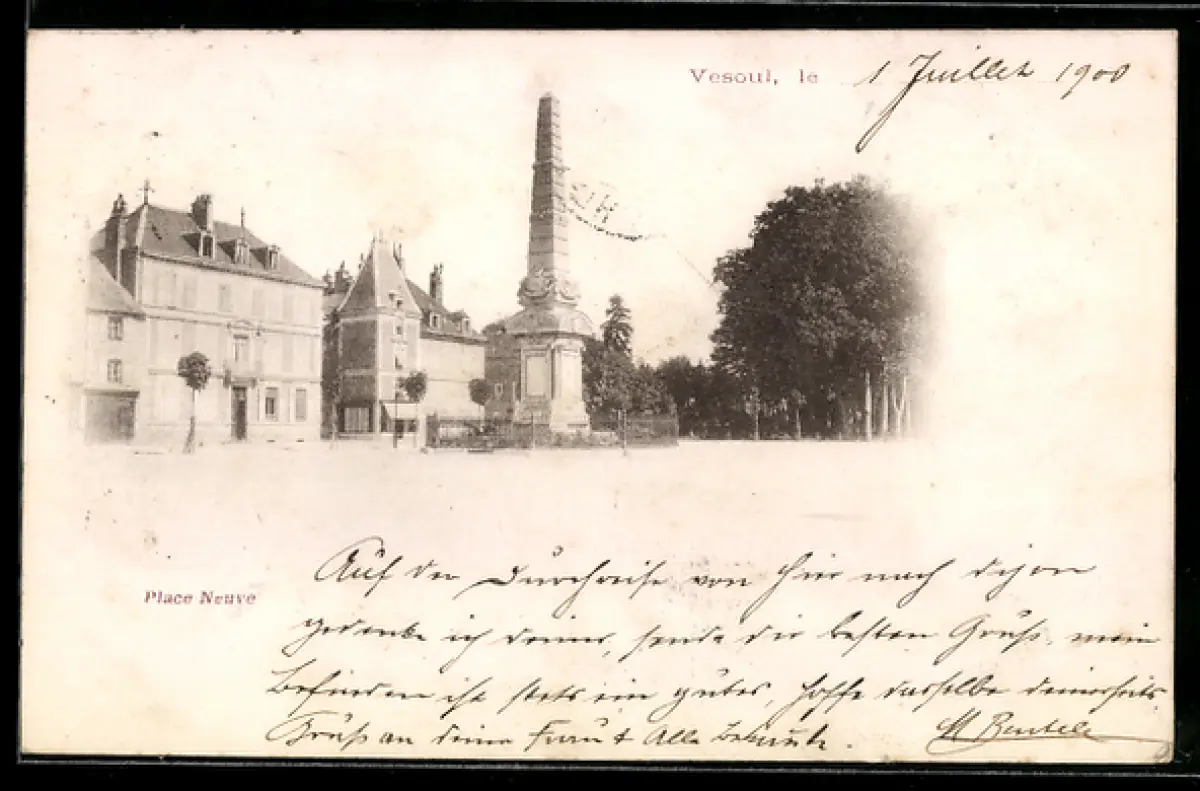 Vesoul, le 1 Juillet 1900
Place Neuve
Auf der Durchreise von hier nach dijon
gedenke ich deiner, sende dir besten Gruß, mein
Befinden ist stets ein gutes, hoffe dasselbe deinerseits,
Gruß an deine Frau & Alle